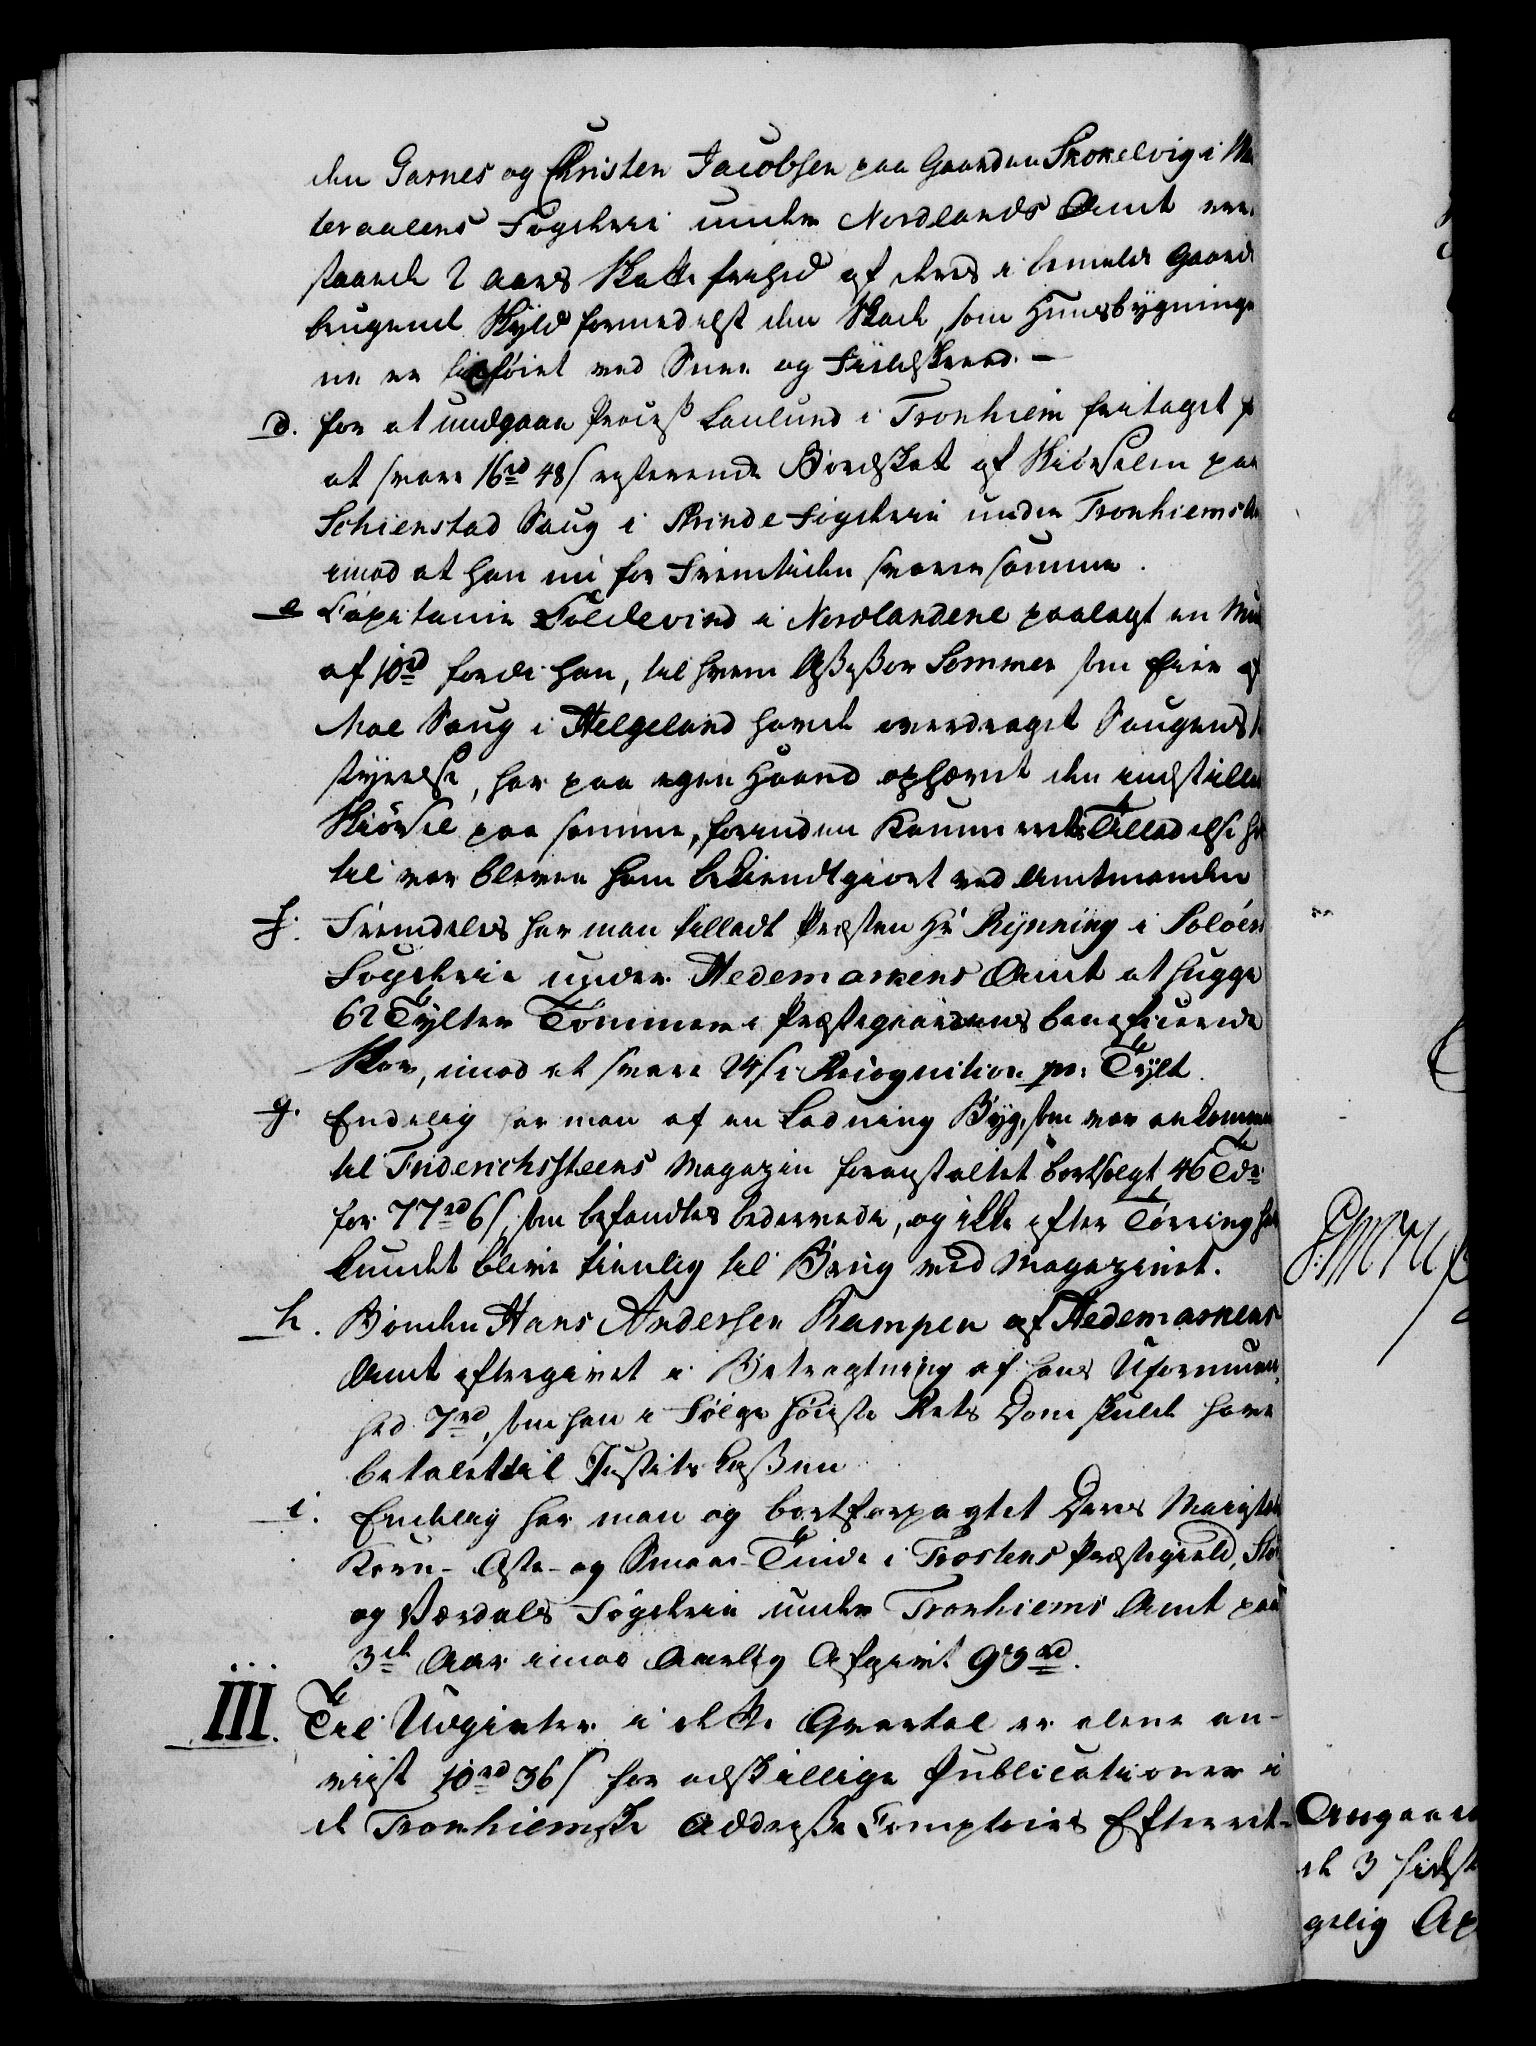 den Garnes og Christen Jacobsen paa Gaarden Skorelvig i
teraalens Fogderie under Nordlands Amt
staaende 2 aars Skatte frihed af deres i bemelte Gaard
brugende Skyld formedelst den Skade, som Huusbygninge
ne er tilføiet ved Snee og Fieldskreed. —
d. for at undgaae Proces Laulund i Tronhiem fritaget f
at svare 16 rd 48 s resterende Bordskat af Skiørselen paa
Schienstad Saug i Strinde Fogderie under Tronhiems
imod at han nu for Fremtiden svarer samme.
e Capitaine Coldevind i Nordlandene paalagt en Mul
af 10 rd fordi han, til hvem Assessor Sommer som Eier af
Moe Saug i Helgeland havde overdraget Saugens
styrelse, har paa egen Haand ophævet den indstillede
Skiørsel paa samme, forinden Kammerets Tilladelse he
til var bleven ham bekiendtgiort ved Amtmanden
f. Fremdeles har man tilladt Præsten Hr Rynning i Soløers
Fogderie under Hedemarkens Amt at hugge
62 Tylter Tømmer i Præstegaardens beneficerede
Skov, imod at svare 24 s i Recognition pr: Tylt.
g. Endelig har man af en Ladning Byg, som var ankommen
til Friderichssteens Magazin foranstaltet bortsolgt 46 Tdr
for 77 rd 6 s, som befandtes bedervede, og ikke efter Tørring ha
kundet blive tienlig til Brug ved Magazinet.
h. Bonden Hans Andersen Kampen af Hedemarkens
Amt eftergivet i Betragtning af hans Uformuen,
hed 7 rd, som han i Følge Høieste Rets Dom skulde have
betalt til Justits Cassen
i. Endelig har man og bortforpagtet Deres Majestæts
Korn- Oste- og Smaae-Tiende i Frostens Præstegield, Stør
og Værdals Fogderie under Tronhiems Amt paa
3de Aar imod Aarlig Afgivt 93 rd.
III. Til Udgivter i dette Qvartal er alene an-
viist 10 rd 36 s for adskillige Publicationer i
de Tronhiemske Addresse Comptoirs Efterret-
Angaaen
de 3 sidst
gelig Ap